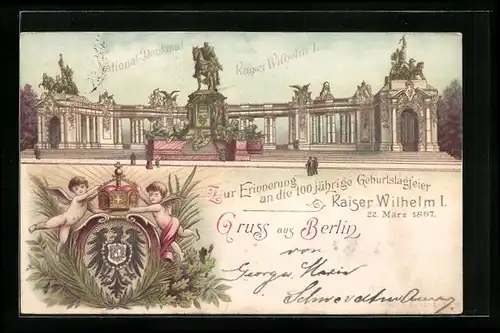 National-Denkmal
Kaiser Wilhelm I.
Zur Erinnerung
an die 100 jährige Geburtstagfeier
Kaiser Wilhelm I.
22. März 1897.
Gruss aus Berlin
von